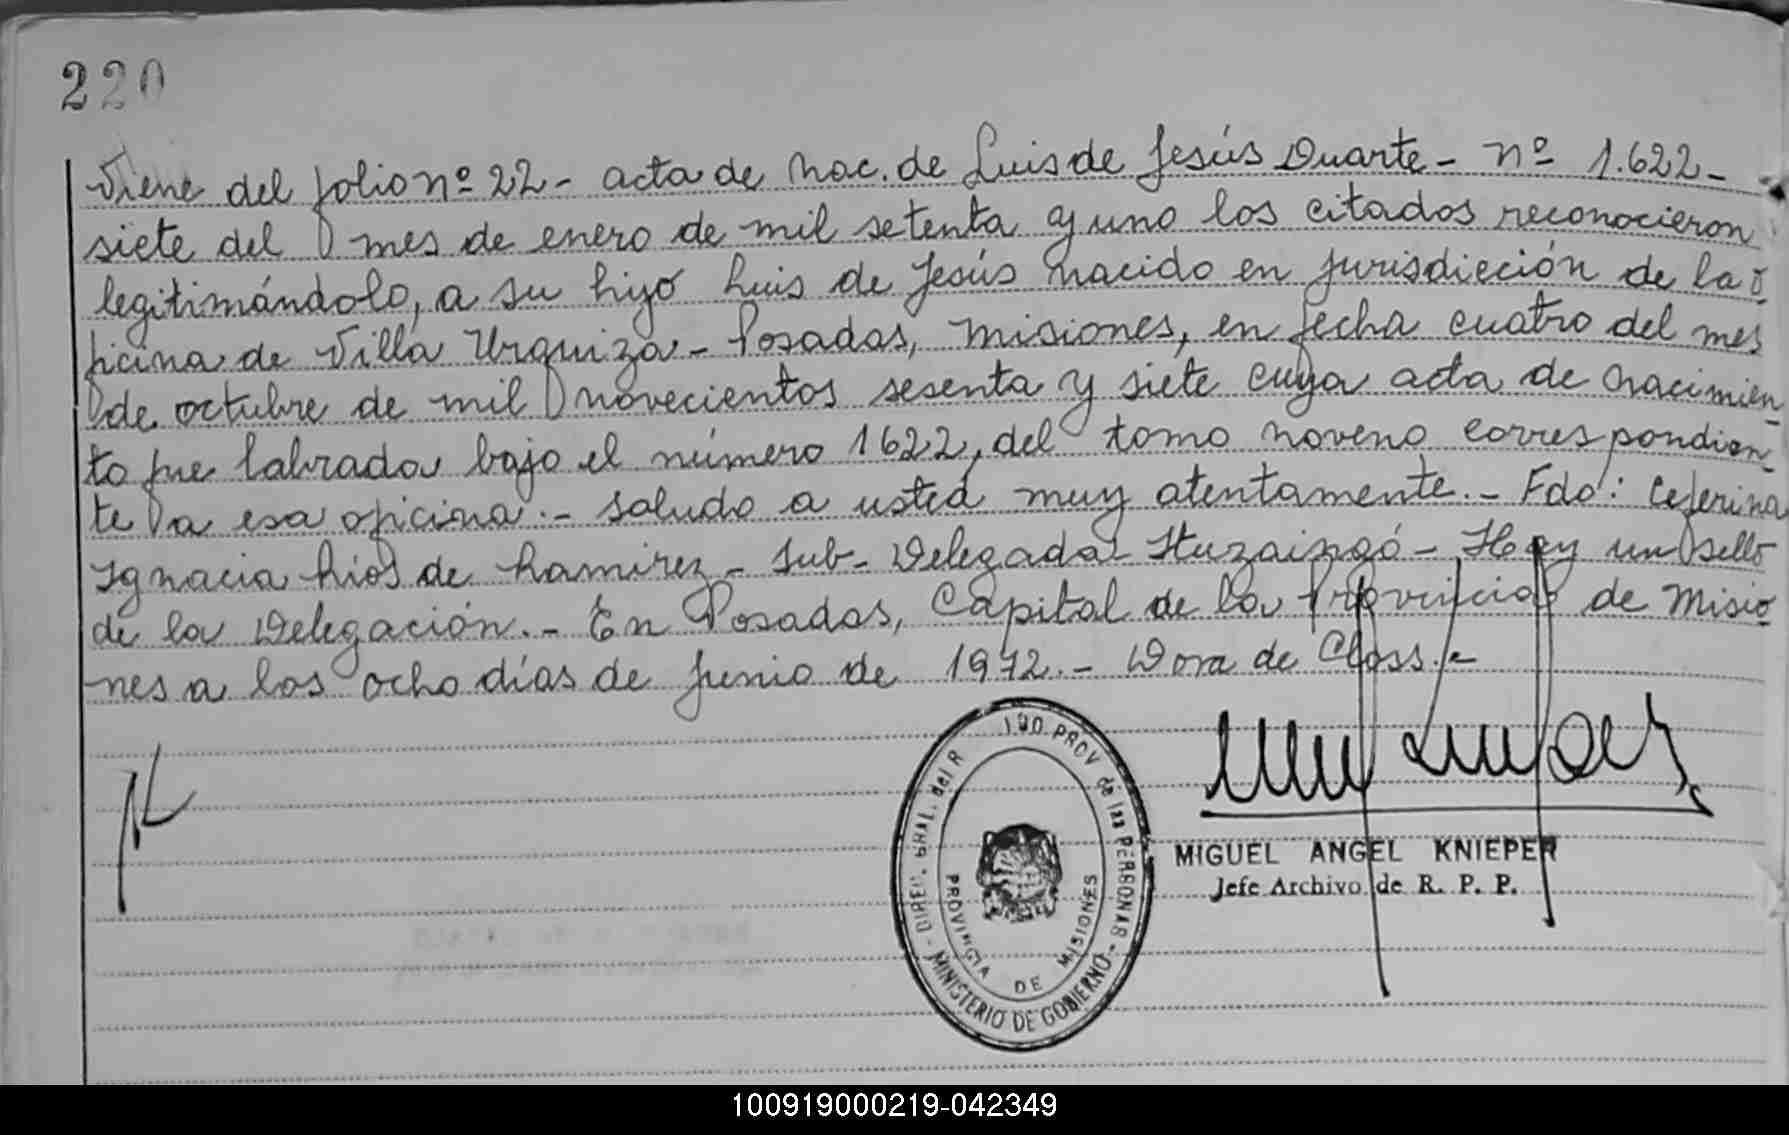 220
Viene del folio nº 22 - acta de nac. de Luis de Jesús Duarte - nº 1.622 -
siete del mes de enero de mil setenta y uno los citados reconocieron
legitimándolo, a su hijo Luis de Jesús nacido en jurisdicción de la o
ficina de Villa Urquiza - Posadas, Misiones, en fecha cuatro del mes
de octubre de mil novecientos sesenta y siete cuya acta de nacimien-
to fue labrada bajo el número 1622, del tomo noveno correspondien-
te a esa oficina.- Saludo a usted muy atentamente.- Fdo: Ceferina
Ignacia Ríos de Ramirez - Sub-Delegada - Ituzaingó - Hay un sello
de la Delegación.- En Posadas, Capital de la Provincia de Misio
nes a los ocho días de Junio de 1972.- Dora de Closs.-
DIREC. GRAL. del R PROV de las PERSONAS - MINISTERIO DE GOBIERNO -
PROVINCIA DE MISIONES
MIGUEL ANGEL KNIEPER
Jefe Archivo de R. P. P.
100919000219-042349